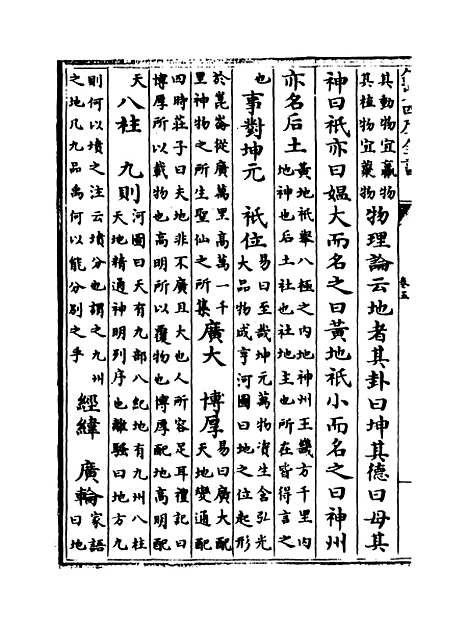 欽定四庫全書
卷五
其動物宜蠃物
其植物宜藂物
物理論云地者其卦曰坤其德曰母其
神曰祇亦曰媪大而名之曰黃地祇小而名之曰神州
亦名后土
黃地祇舉八極之内地神州王畿方千里内
地神也后土社也社地主也所在皆得言之
也
事對坤元 祇位
易曰至哉坤元萬物資生含弘光
大品物咸亨河圖曰地之位起形
於崑崙從廣萬里高萬一千
里神物之所生聖仙之所集
廣大 博厚
易曰廣大配
天地變通配
四時莊子曰夫地非不廣且大也人所容足耳禮記曰
博厚所以載物也高明所以覆物也博厚配地高明配
天
八柱 九則
河圖曰天有九部八紀地有九州八柱
天地精通神明列序也離騷曰地方九
則何以墳之注云墳分也謂之九州
之地凡九品禹何以能分别之乎
經緯 廣輪
家語
曰地